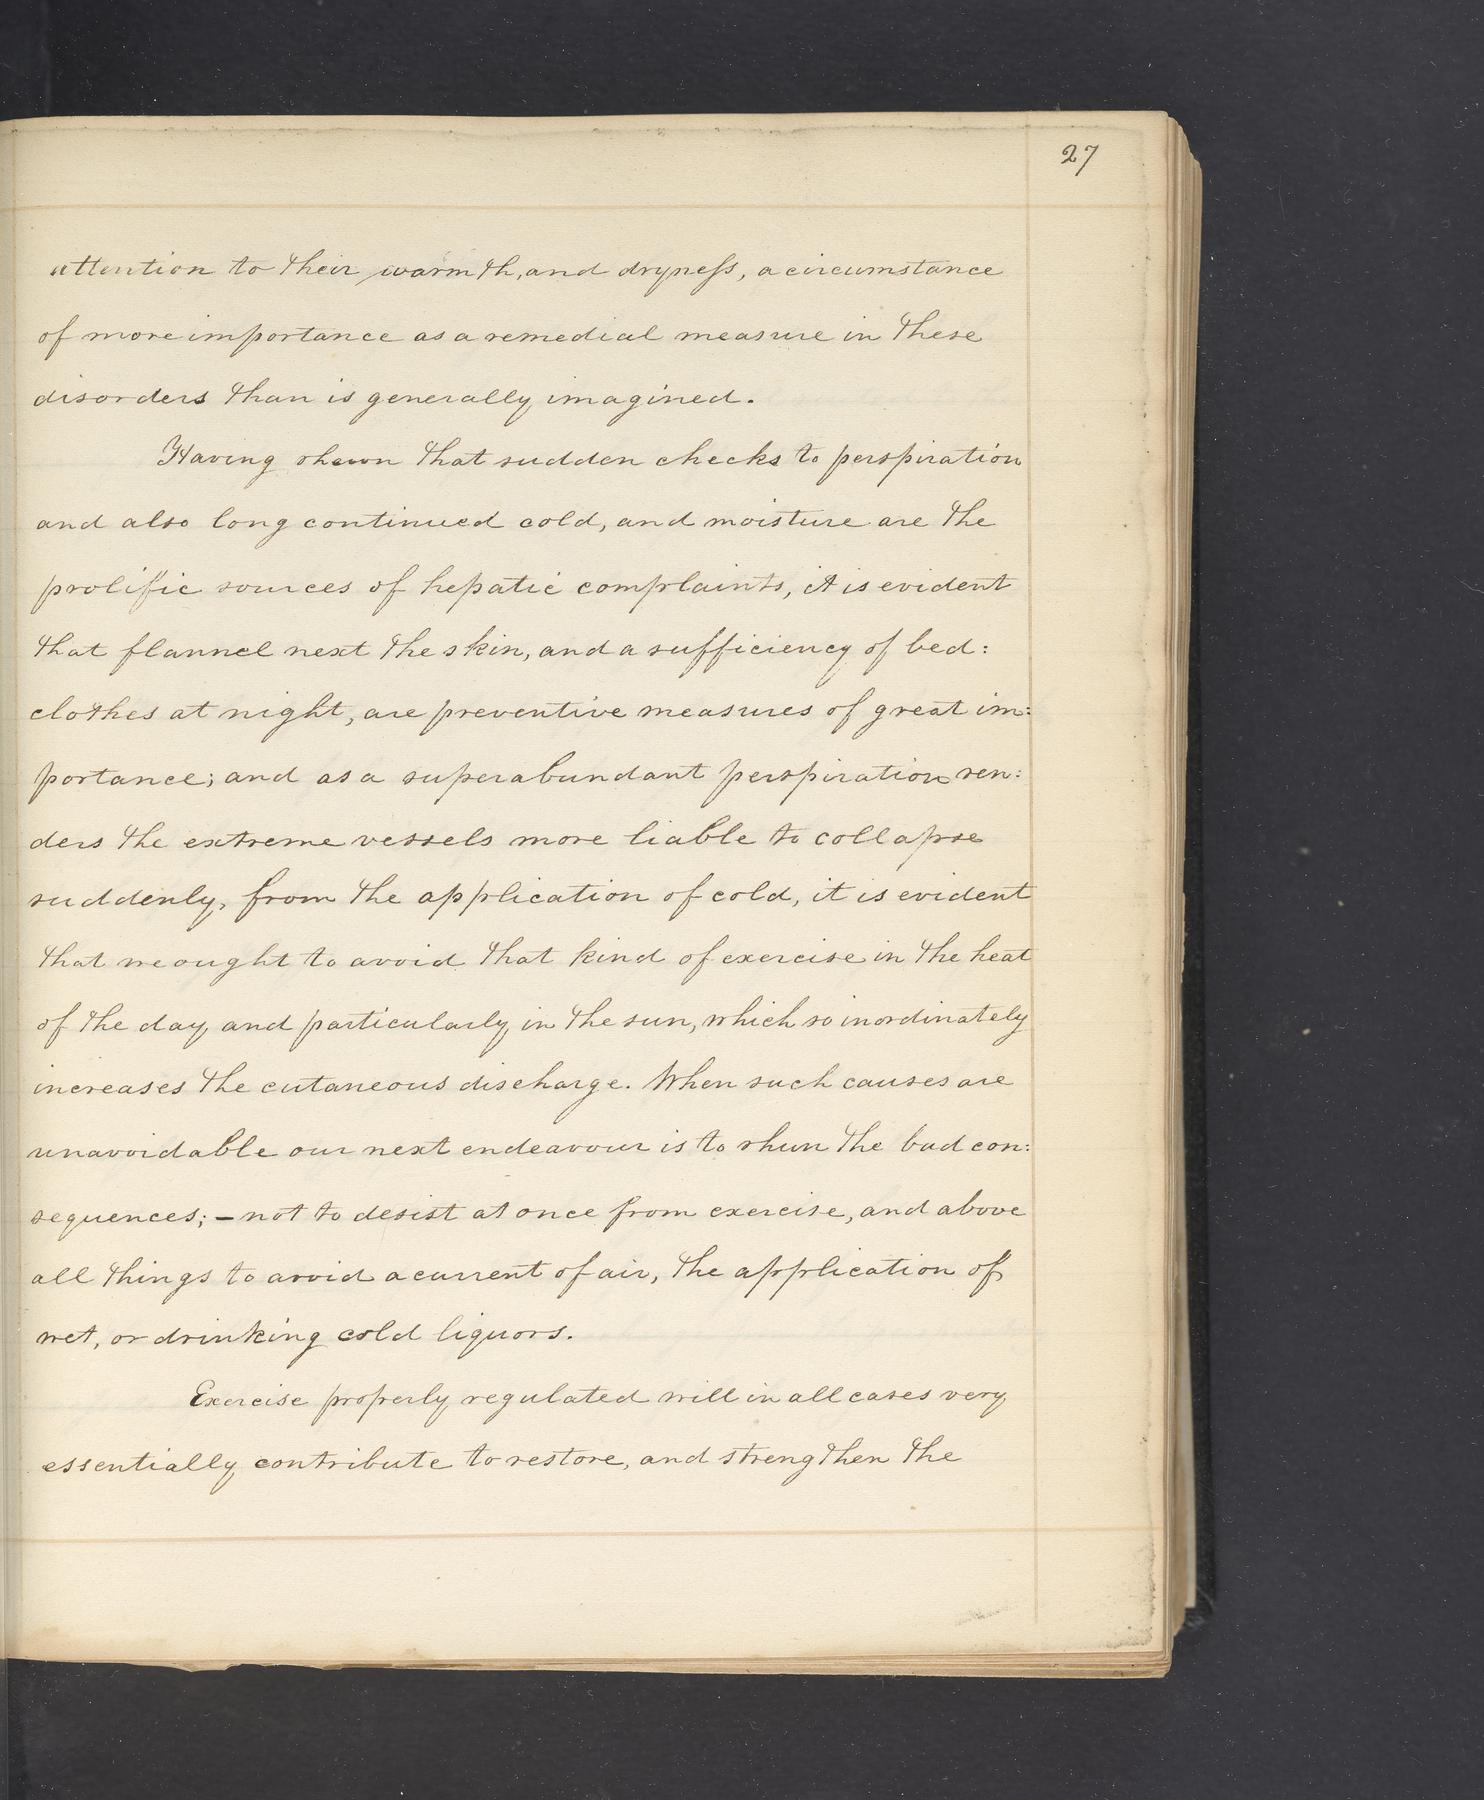 27
attention to their warmth, and dryness, a circumstance
of more importance as a remedial measure in these
disorders than is generally imagined.
Having shewn that sudden checks to perspiration
and also long continued cold, and moisture are the
prolific sources of hepatic complaints, it is evident
that flannel next the skin, and a sufficiency of bed:
clothes at night, are preventive measures of great im:
portance; and as a superabundant perspiration ren:
ders the extreme vessels more liable to collapse
suddenly, from the application of cold, it is evident
that we ought to avoid that kind of exercise in the heat
of the day and particularly in the sun, which so inordinately
increases the cutaneous discharge. When such causes are
unavoidable our next endeavour is to shun the bad con:
sequences; — not to desist at once from exercise, and above
all things to avoid a current of air, the application of
wet, or drinking cold liquors.
Exercise properly regulated will in all cases very
essentially contribute to restore, and strengthen the